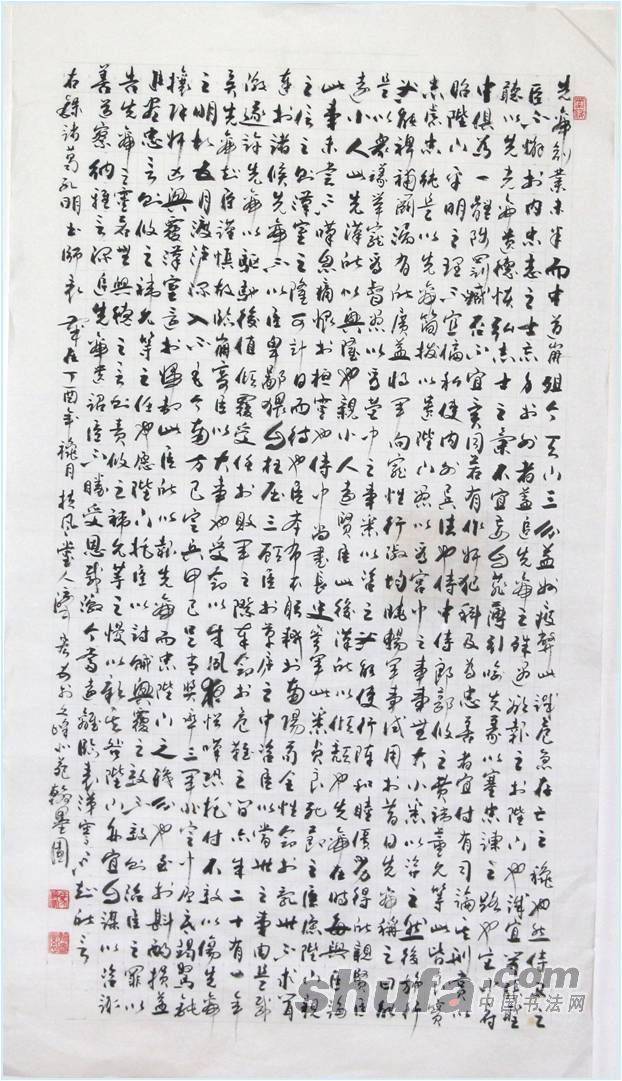 先帝創業未半而中道崩殂今天下三分益州疲弊此誠危急存亡之秋也然侍衛之
臣不懈於內忠志之士忘身於外者蓋追先帝之殊遇欲報之於陛下也誠宜開張聖
聽以光先帝遺德恢弘志士之氣不宜妄自菲薄引喻失義以塞忠諫之路也宮中府
中俱為一體陟罰臧否不宜異同若有作奸犯科及為忠善者宜付有司論其刑賞以
昭陛下平明之理不宜偏私使內外異法也侍中侍郎郭攸之費禕董允等此皆良實
志慮忠純是以先帝簡拔以遺陛下愚以為宮中之事事無大小悉以咨之然後施行
必能裨補闕漏有所廣益將軍向寵性行淑均曉暢軍事試用於昔日先帝稱之曰能
是以眾議舉寵為督愚以為營中之事悉以咨之必能使行陣和睦優劣得所親賢臣
遠小人此先漢所以興隆也親小人遠賢臣此後漢所以傾頹也先帝在時每與臣論
此事未嘗不嘆息痛恨於桓靈也侍中尚書長史參軍此悉貞良死節之臣願陛下親
之信之則漢室之隆可計日而待也臣本布衣躬耕於南陽苟全性命於亂世不求聞
達於諸侯先帝不以臣卑鄙猥自枉屈三顧臣於草廬之中咨臣以當世之事由是感
激遂許先帝以驅馳後值傾覆受任於敗軍之際奉命於危難之間爾來二十有一年
矣先帝知臣謹慎故臨崩寄臣以大事也受命以來夙夜憂嘆恐托付不效以傷先帝
之明故五月渡瀘深入不毛今南方已定兵甲已足當獎率三軍北定中原庶竭駑鈍
攘除奸凶興復漢室還於舊都此臣所以報先帝而忠陛下之職分也至於斟酌損益
進盡忠言則攸之禕允等之任也願陛下托臣以討賊興復之效不效則治臣之罪以
告先帝之靈若無興德之言則責攸之禕允等之慢以彰其咎陛下亦宜自謀以咨諏
善道察納雅言深追先帝遺詔臣不勝受恩感激今當遠離臨表涕零不知所言
右錄諸葛孔明出師表 歲在丁酉年臘月扶風堂人 書於文峰小苑翰墨園
shufa.com
中国书法网